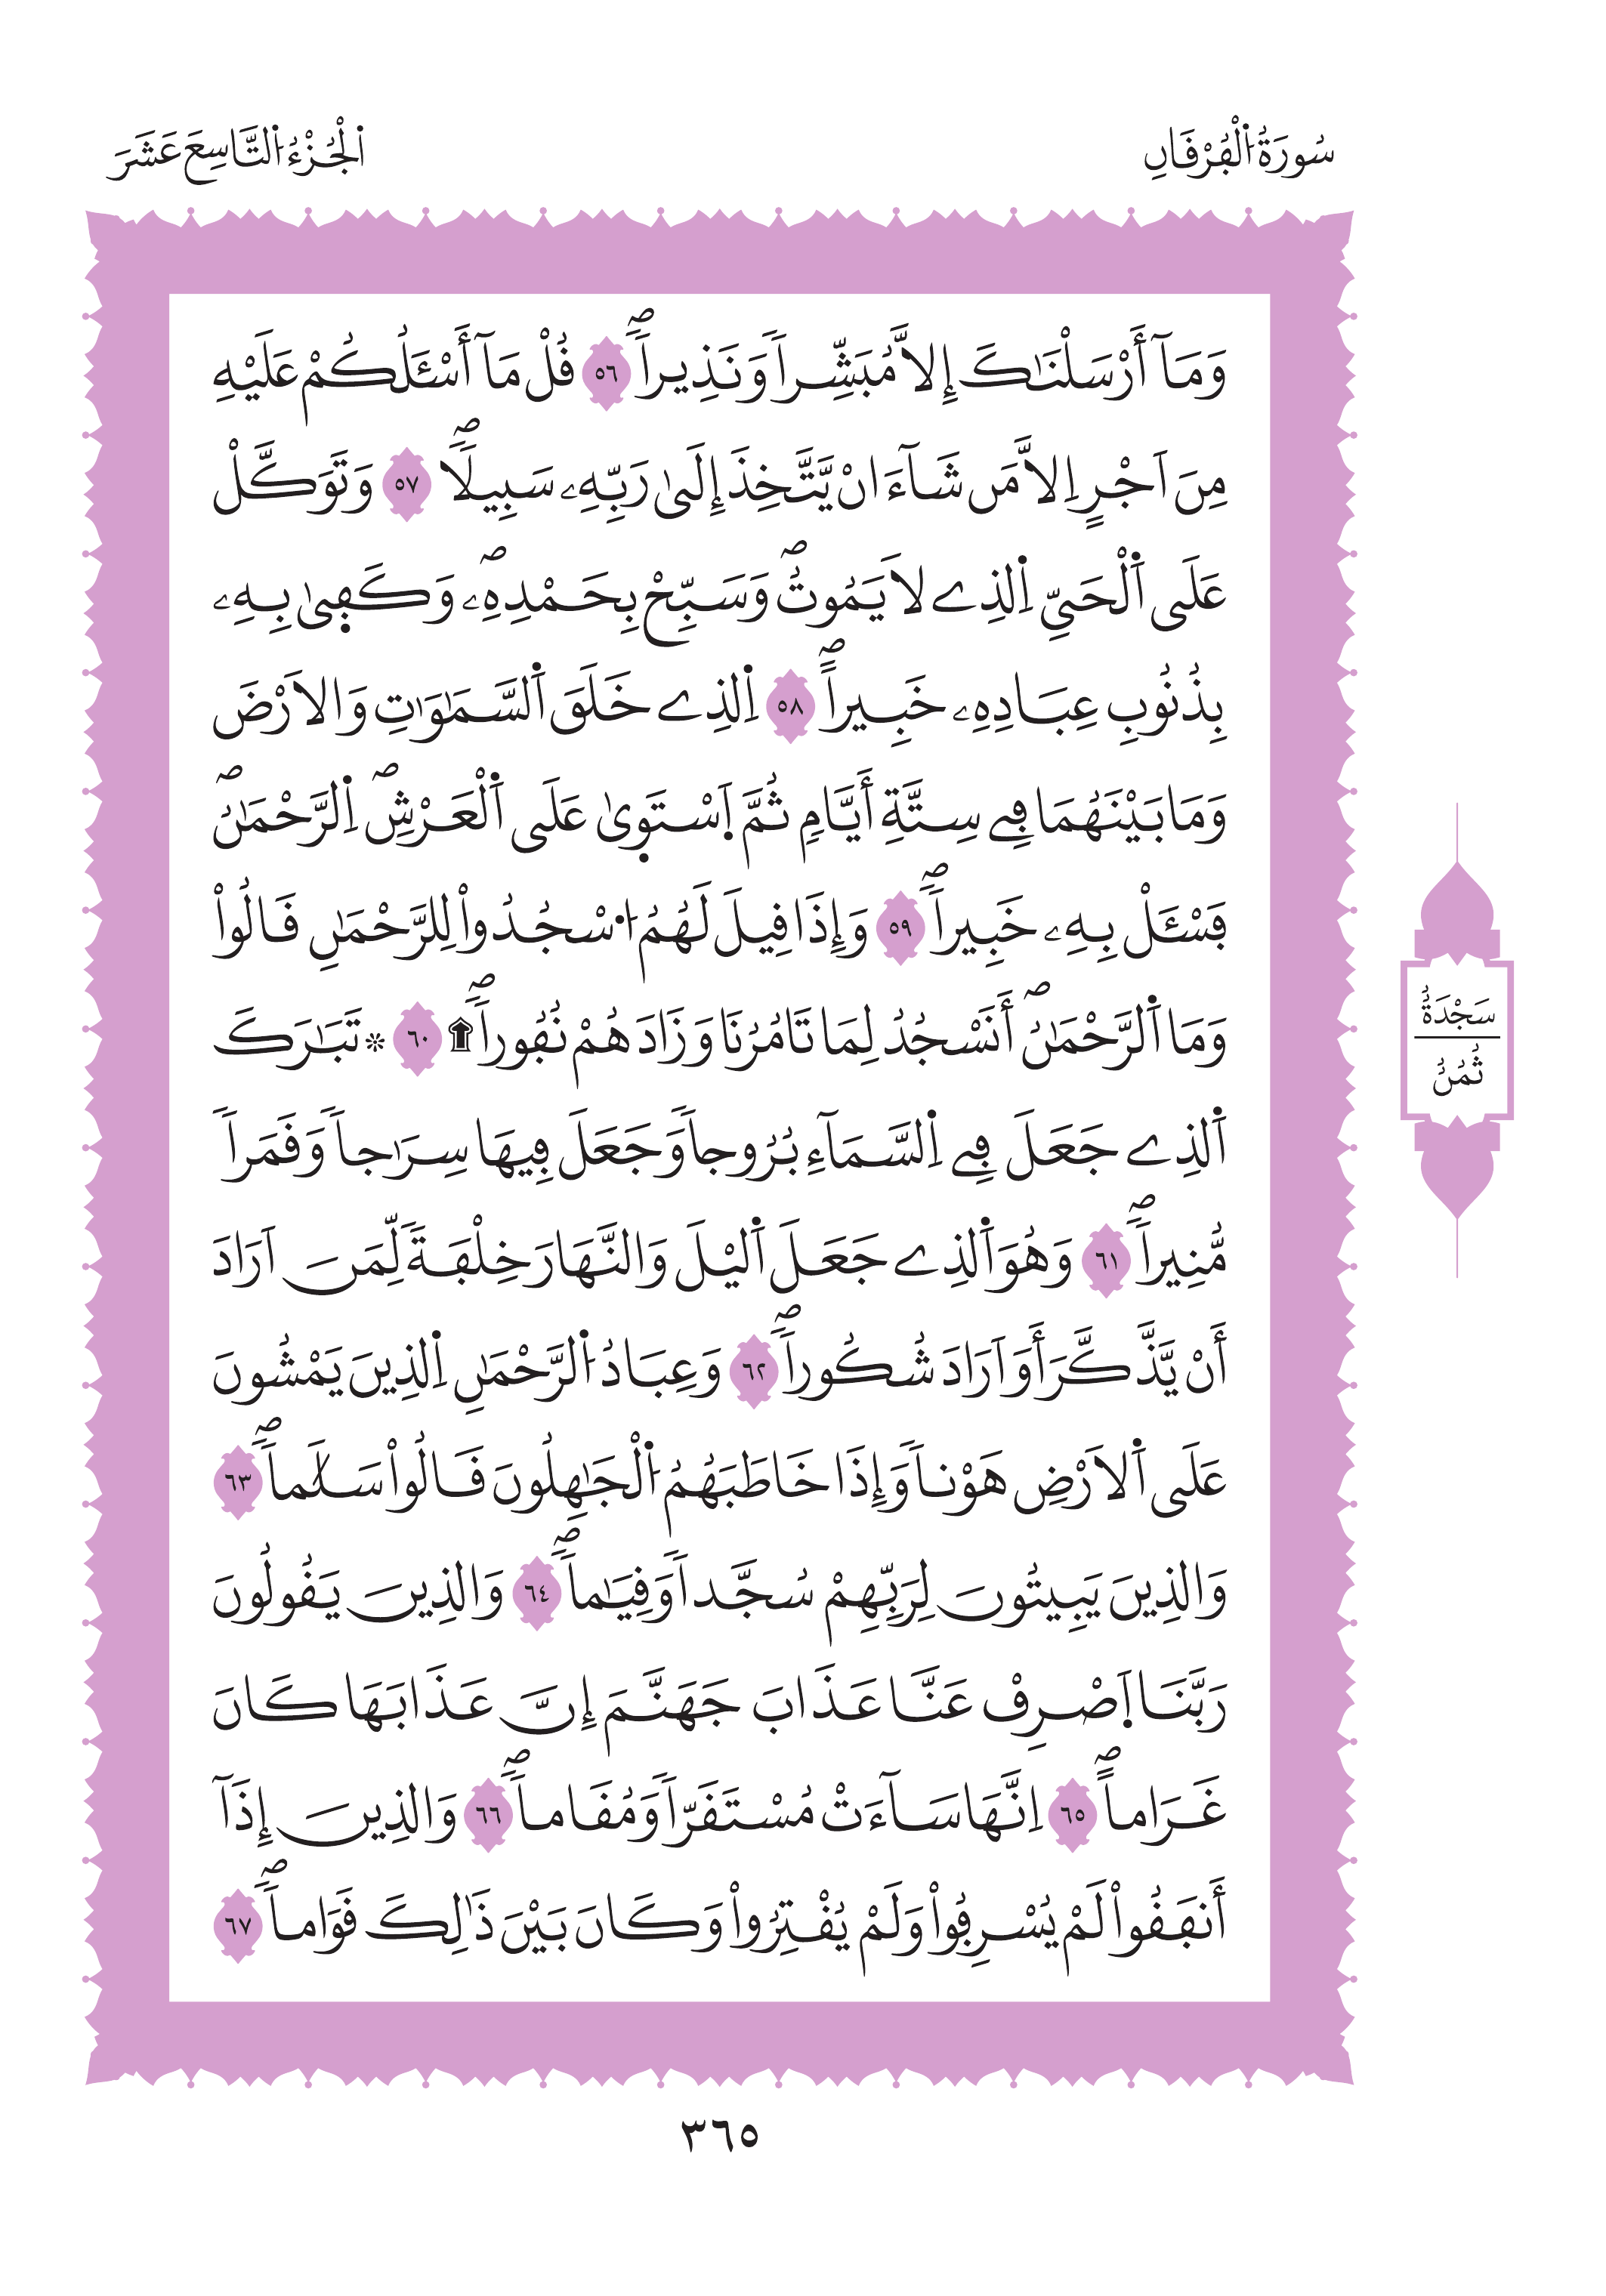 سُورَةُ اُ۬لْفُرْقَانِ
اَ۬لْجُزْءُ اُ۬لتَّاسِعَ عَشَرَ
وَمَآ أَرْسَلْنَٰكَ إِلاَّ مُبَشِّراٗ وَنَذِيراٗۖ ٥٦ قُلْ مَآ أَسْـَٔلُكُمْ عَلَيْهِ
مِنَ اَجْرٍ اِلاَّ مَن شَآءَ انْ يَّتَّخِذَ إِلَىٰ رَبِّهِۦ سَبِيلاٗۖ ٥٧ وَتَوَكَّلْ
عَلَى اَ۬لْحَيِّ اِ۬لذِے لاَ يَمُوتُۖ وَسَبِّحْ بِحَمْدِهِۦۖ وَكَف۪ىٰ بِهِۦ
بِذُنُوبِ عِبَادِهِۦ خَبِيراًۖ ٥٨ اِ۬لذِے خَلَقَ اَ۬لسَّمَٰوَٰتِ وَالاَرْضَ
وَمَا بَيْنَهُمَا فِے سِتَّةِ أَيَّامٖ ثُمَّ اَ۪سْتَو۪ىٰ عَلَى اَ۬لْعَرْشِۖ اِ۬لرَّحْمَٰنُۖ
فَسْـَٔلْ بِهِۦ خَبِيراٗۖ ٥٩ وَإِذَا قِيلَ لَهُمُ اُ۟سْجُدُواْ لِلرَّحْمَٰنِ قَالُواْ
وَمَا اَ۬لرَّحْمَٰنُۖ أَنَسْجُدُ لِمَا تَامُرُنَا وَزَادَهُمْ نُفُوراٗۖ ۩ ٦٠ ۞ تَبَٰرَكَ
اَ۬لذِے جَعَلَ فِے اِ۬لسَّمَآءِ بُرُوجاٗ وَجَعَلَ فِيهَا سِرَٰجاٗ وَقَمَراٗ
مُّنِيراٗۖ ٦١ وَهُوَ اَ۬لذِے جَعَلَ اَ۬ليْلَ وَالنَّهَارَ خِلْفَةٗ لِّمَنَ اَرَادَ
أَنْ يَّذَّكَّرَ أَوَ اَرَادَ شُكُوراٗۖ ٦٢ وَعِبَادُ اُ۬لرَّحْمَٰنِ اِ۬لذِينَ يَمْشُونَ
عَلَى اَ۬لاَرْضِ هَوْناٗ وَإِذَا خَاطَبَهُمُ اُ۬لْجَٰهِلُونَ قَالُواْ سَلَٰماٗۖ ٦٣
وَالذِينَ يَبِيتُونَ لِرَبِّهِمْ سُجَّداٗ وَقِيَٰماٗۖ ٦٤ وَالذِينَ يَقُولُونَ
رَبَّنَا اَ۪صْرِفْ عَنَّا عَذَابَ جَهَنَّمَ إِنَّ عَذَابَهَا كَانَ
غَرَاماًۖ ٦٥ اِنَّهَا سَآءَتْ مُسْتَقَرّاٗ وَمُقَاماٗۖ ٦٦ وَالذِينَ إِذَآ
أَنفَقُواْ لَمْ يُسْرِفُواْ وَلَمْ يُقْتِرُواْ وَكَانَ بَيْنَ ذَٰلِكَ قَوَاماٗۖ ٦٧
سَجْدَةٌ
ثُمُنٌ
٣٦٥